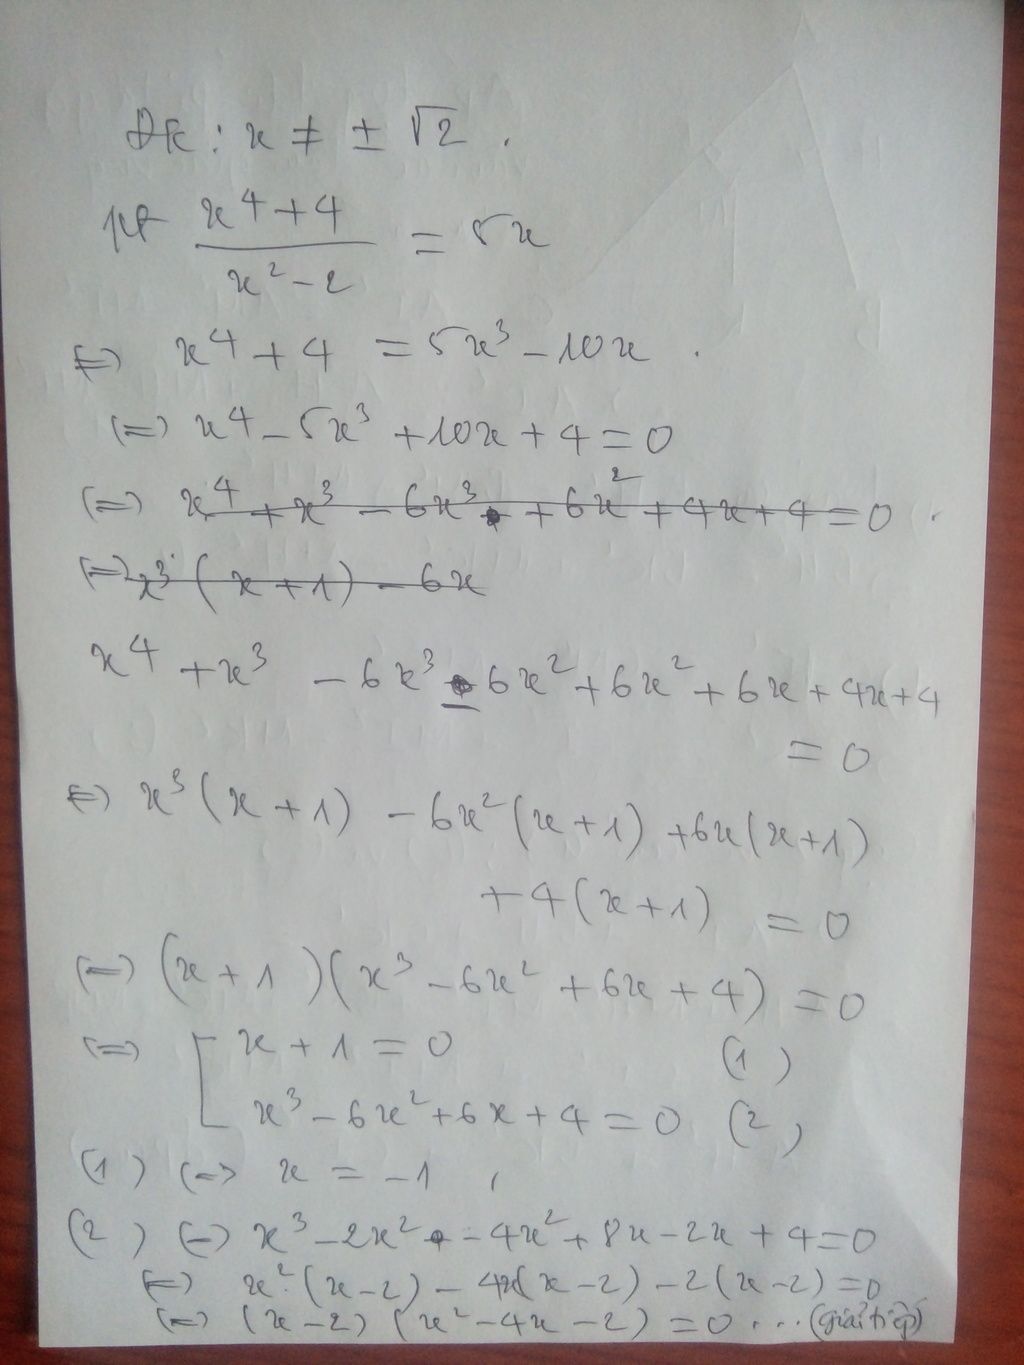 Đk : x ≠ ± √2 .
pt (x⁴ + 4)/(x² - 2) = 5x
⇔ x⁴ + 4 = 5x³ - 10x .
(=) x⁴ - 5x³ + 10x + 4 = 0
(=) x⁴ + x³ - 6x³ + 6x² + 4x + 4 = 0 .
(=) x³ (x + 1) - 6x
x⁴ + x³ - 6x³ - 6x² + 6x² + 6x + 4x + 4
= 0
⇔ x³ (x + 1) - 6x² (x + 1) + 6x (x + 1)
+ 4 (x + 1) = 0
(=) (x + 1)(x³ - 6x² + 6x + 4) = 0
(=) [ x + 1 = 0 (1)
x³ - 6x² + 6x + 4 = 0 (2)
(1) (=) x = -1 ,
(2) (=) x³ - 2x² - 4x² + 8x - 2x + 4 = 0
(=) x² (x - 2) - 4x (x - 2) - 2 (x - 2) = 0
(=) (x - 2) (x² - 4x - 2) = 0 ... (giải tiếp)